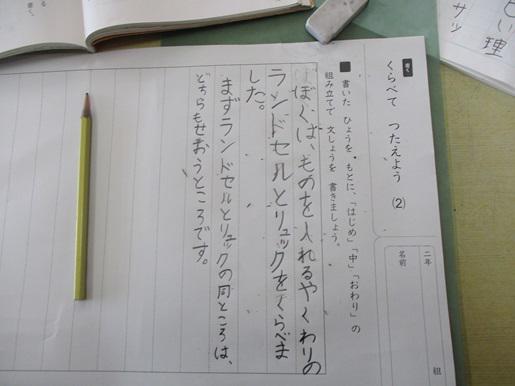 書く
くらべて つたえよう (2)
二年
組
名前
■ 書いた ひょうを もとに、「はじめ」「中」「おわり」の
組み立てで 文しょうを 書きましょう。
ぼくは、ものを入れるやくわりの
ランドセルとリュックをくらべま
した。
まずランドセルとリュックの同ところは、
どちらもせおうところです。